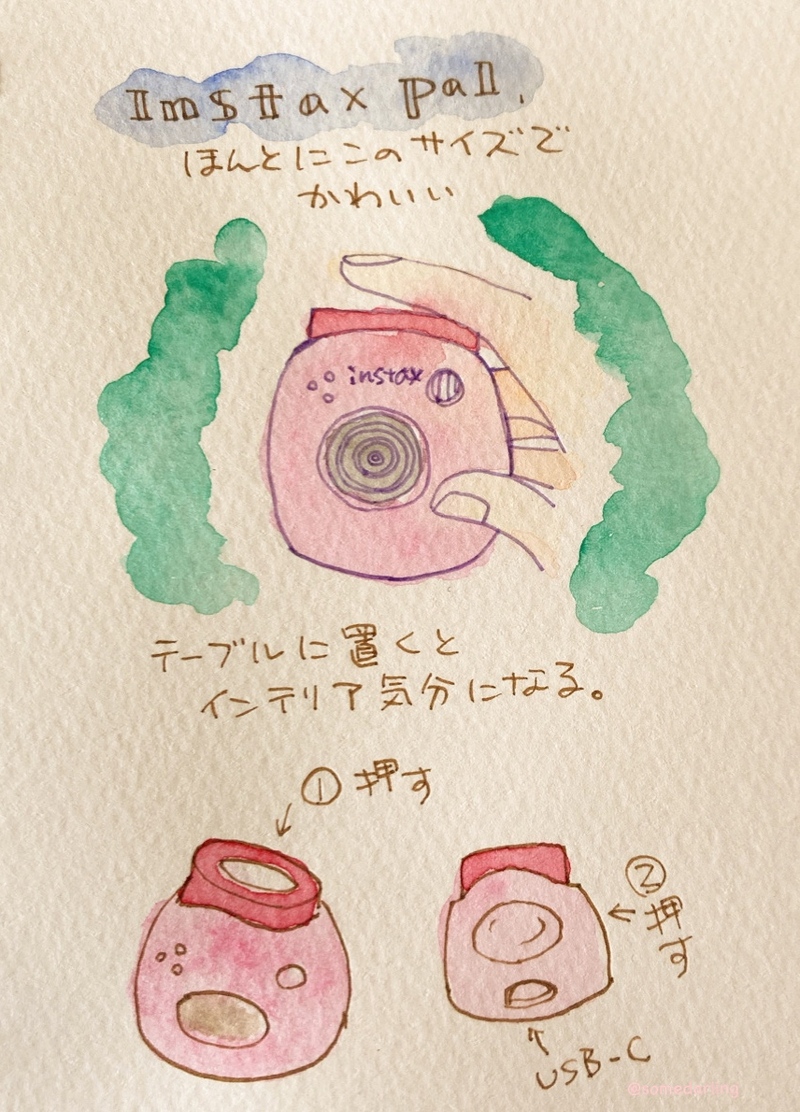 Instax pal.
ほんとにこのサイズで
かわいい
instax
テーブルに置くと
インテリア気分になる。
① 押す
② 押す
USB-C